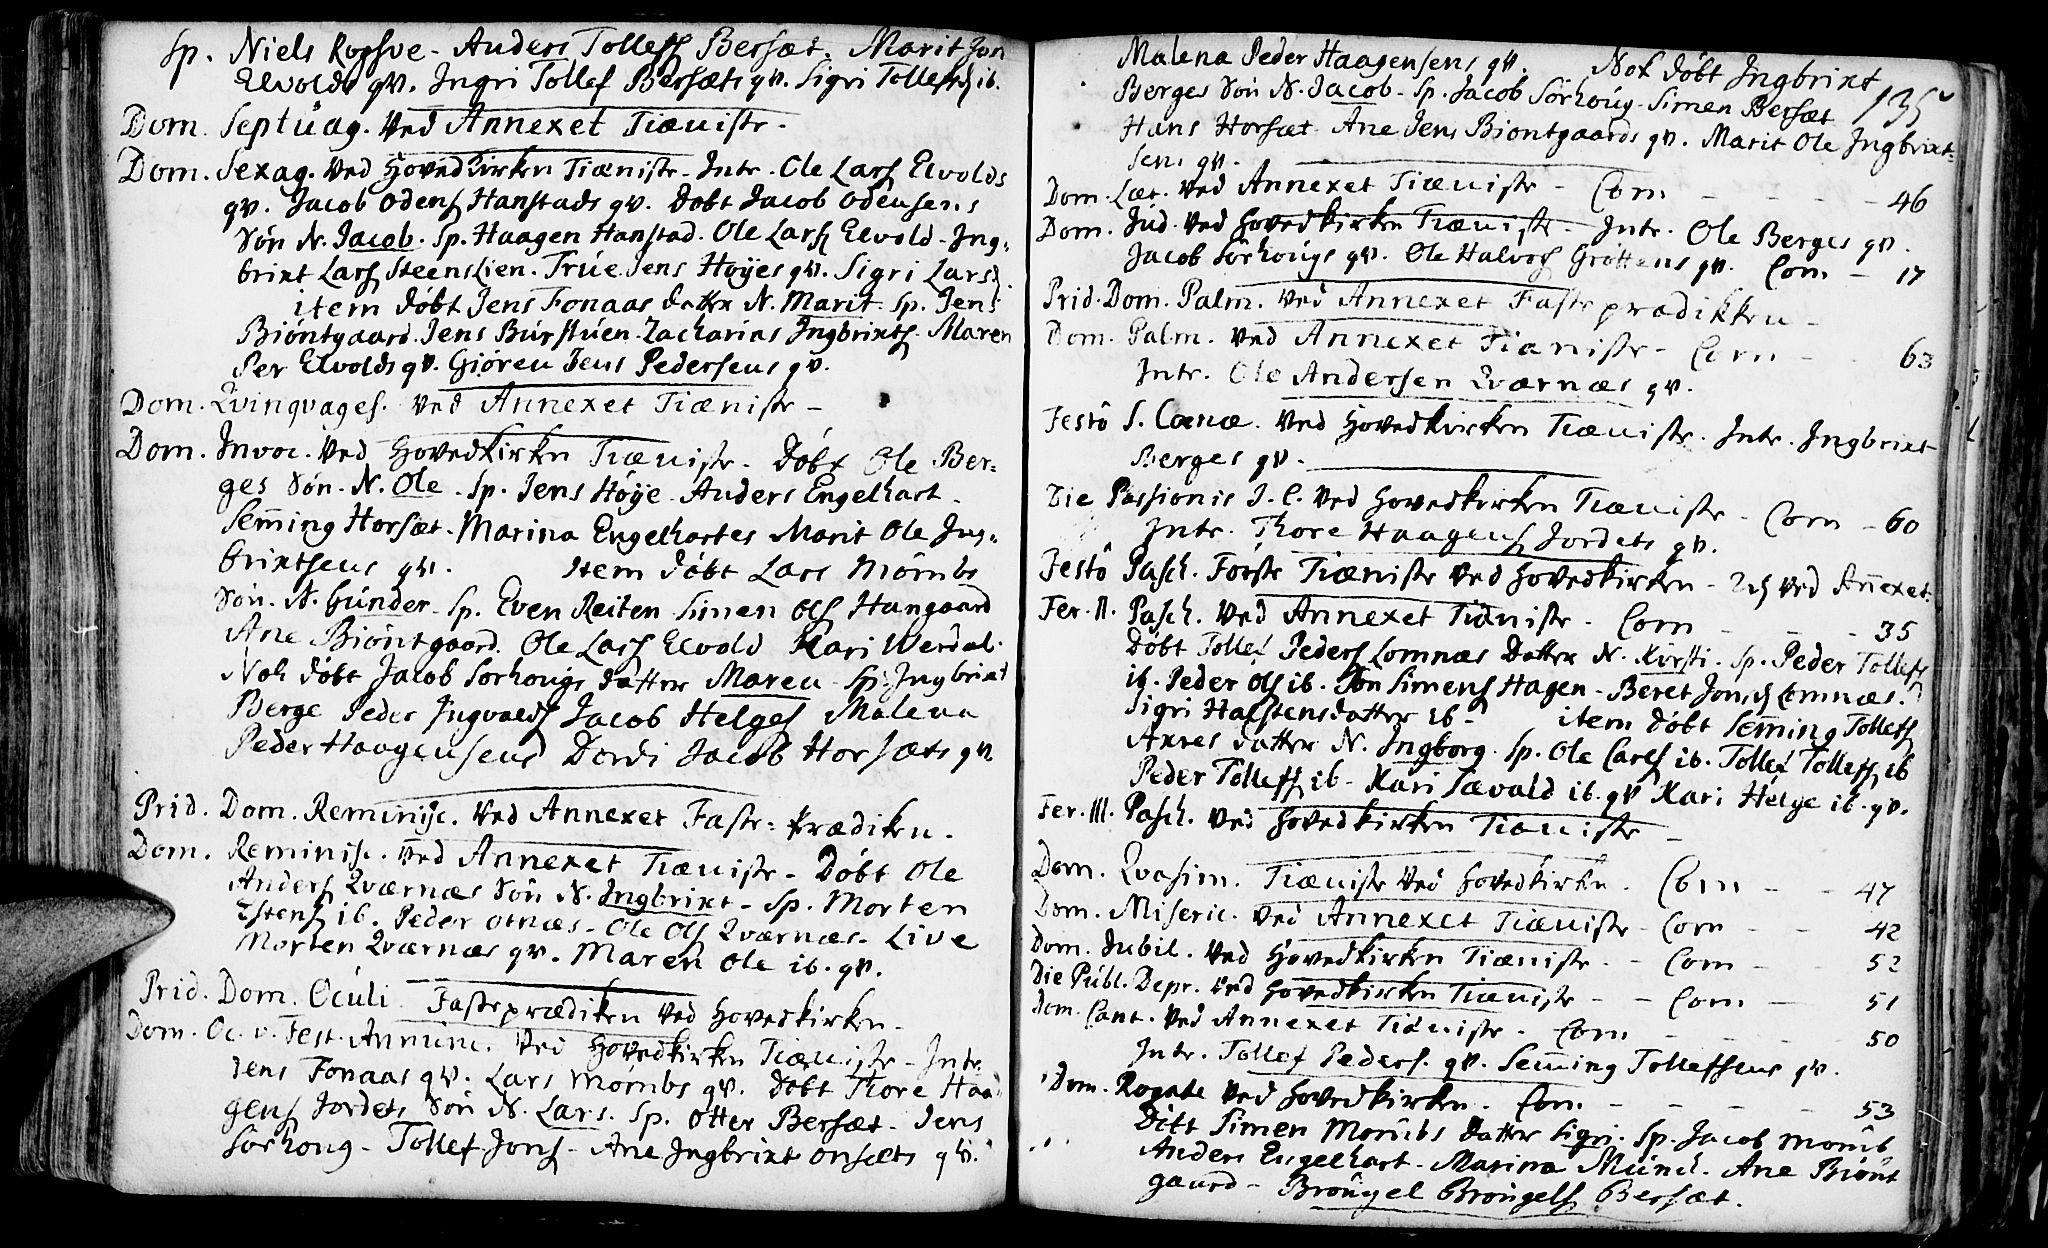 Sp. Niels Ropsve - Anders Tollefs Bersæt. Marit Jon
Elvolds qv. Ingri Tollef Bersæts qv. Sigri Tollefsd ib.
Dom. Septuag. ved Annexet Tiæniste -
Dom. Sexag. ved Hovedkirken Tiæniste - Intr. Ole Lars Elvolds
qv. Jacob Odens Hanstads qv. Døbt Jacob Odensens
Søn N. Jacob. Sp. Haagen Hanstad. Ole Lars Elvold - Ing-
brixt Lars Steenslien. True Jens Høyes qv. Sigri Larsd.
item døbt Jens Fonaas datter N. Marit. Sp. Jens
Biøntgaard. Jens Burstuen. Zacharias Ingbrixts. Maren
Per Elvolds qv. Giøren Jens Pedersens qv.
Dom. Qvinqvages. ved Annexet Tiæniste -
Dom. Invoc. ved Hovedkirken Tiæniste. Døbt Ole Ber-
ges Søn. N. Ole. Sp. Jens Høye. Anders Engelhart.
Semming Horsæt. Marina Engelhartes Marit Ole Ing-
brixtsens qv. Item døbt Lars Mømbs
Søn. N. Gunder. Sp. Even Reiten Simen Ols Hangaard
Ane Biøntgaard. Ole Lars Elvold Kari Werdal.
Nok døbt Jacob Sorhougs datter Maren Sp. Ingbrixt
Berge Peder Ingvalds Jacob Helges Malena
Peder Haagensens Dordi Jacob Horsæts qv.
Prid. Dom. Reminisc. ved Annexet Faste-Prædiken.
Dom. Reminisc. ved Annexet Tiæniste - Døbt Ole
Anders Qværnæs Søn N. Ingbrixt - Sp. Morten
Estens ib. Peder Otnæs - Ole Ols Qværnæs. Live
Morten Qværnæs qv. Maren Ole ib. qv.
Prid. Dom. Oculi Fasteprædiken ved Hovedkirken -
Dom. Oc. v. Fest. Annunc. ved Hovedkirken Tiæniste - Intr.
Jens Fonaas qv. Lars Mømbs qv. Døbt Thore Haa-
gens Jordets Søn N. Lars. Sp. Otter Bersæt. Jens
Sörhoug - Tollef Jons - Ane Ingbrixt Onsæts qv.
Malena Peder Haagensens qv. Nok døbt Ingbrixt
135
Berges Søn N. Jacob - Sp. Jacob Sörhoug - Simen Bersæt
Hans Horsæt. Ane Jens Biontgaards qv. Marit Ole Ingbrixt-
sens qv.
Dom. Læt. ved Annexet Tiæniste - Com - - - - 46
Dom. Jud. ved Hovedkirken Tiæniste - Intr. Ole Berges qv.
Jacob Sörhougs qv. Ole Halvors Grøttens qv. Com - 17
Prid. Dom. Palm. ved Annexet Fasteprædikken -
Dom. Palm. ved Annexet Tiæniste - Com - - 63
Intr. Ole Andersen Qværnæs qv.
Festô S. Coenæ. ved Hovedkirken Tiæniste. Intr. Ingbrixt
Berges qv.
Die Passionis J. C. ved Hovedkirken Tiæniste - Com - 60
Intr. Thore Haagens Jordets qv.
Festô Pasch. Første Tiæniste ved Hovedkirken - ved Annexet.
Fer. II. Pasch. ved Annexet Tiæniste. Com - - - 35
Døbt Tollef Peders Lomnæs Datter N. Kirsti. Sp. Peder Tollefs
ib. Peder Ols ib. Jon Simens Hagen - Beret Jonsd Lomnæs.
Sigri Halstensdatter ib - item døbt Semming Tollefs
Axnes datter N. Ingborg. Sp. Ole Carls ib. Tollef Tollefs ib
Peder Tollefs ib - Kari Sævald ib. qv Kari Helge ib. qv.
Fer. III. Pasch. ved Hovedkirken Tiæniste -
Dom. Qvasim. Tiæniste ved Hovedkirken. Com - - 47
Dom. Miseric. ved Annexet Tiæniste - Com - - 42
Dom. Jubil. ved Hovedkirken Tiæniste. - Com - - 52
Die Publ. Depr. ved Hovedkirken Tiæniste - - Com - 51
Dom. Cant. ved Annexet Tiæniste. Com - - - 50
Intr. Tollef Peders. qv. Semming Tollefsens qv.
Dom. Rogate ved Hovedkirken. Com - - - - 53
Ditt Simen Mömbs datter Sigri. Sp. Jacob Mömb
Anders Engelhart - Marina Münch. Ane Biönt
gaard - Bröngel Bröngels Bersæt.